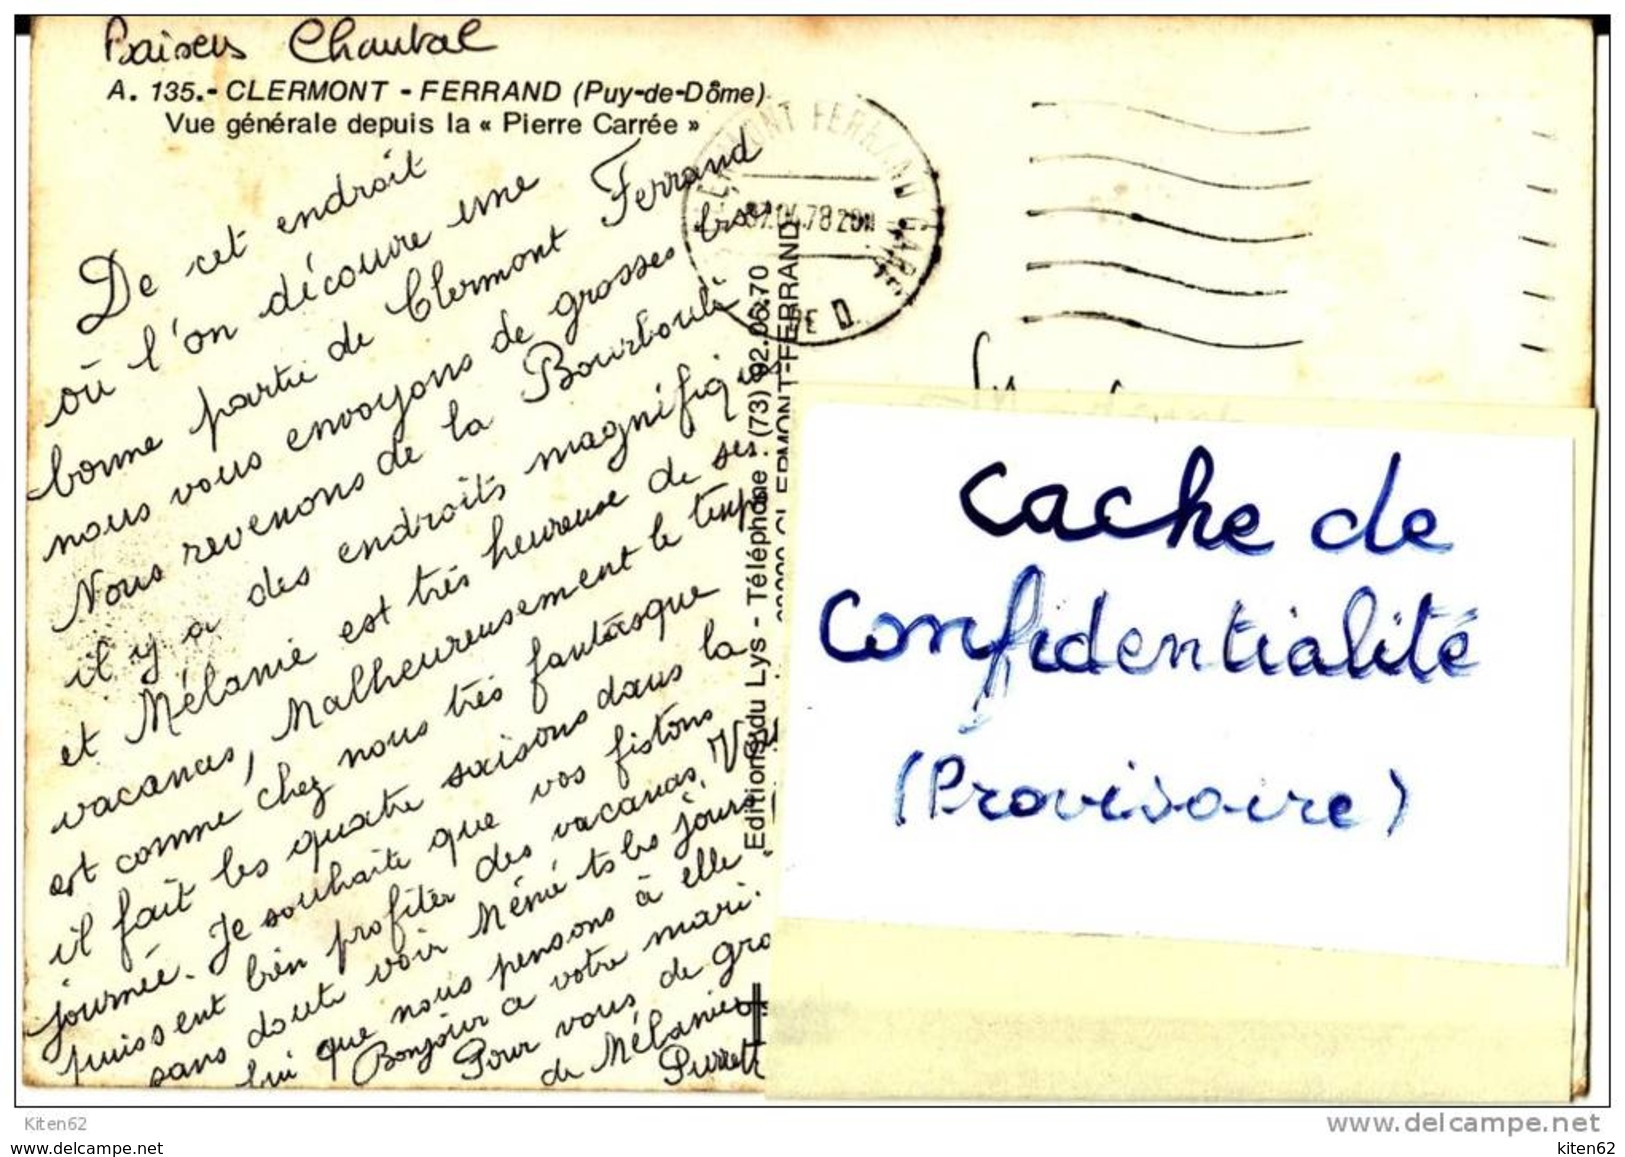 Baisers Chantal
A. 135.- CLERMONT - FERRAND (Puy-de-Dôme)
Vue générale depuis la « Pierre Carrée »
De cet endroit
où l'on découvre une
bonne partie de Clermont Ferrand
nous vous envoyons de grosses bises
Nous revenons de la Bourboule
il y a des endroits magnifiques
et Mélanie est très heureuse de ses
vacances, Malheureusement le temps
est comme chez nous très fantasque
il fait les quatre saisons dans la
journée. Je souhaite que vos fistons
puissent bien profiter des vacances. Vous
sans doute voir Mémé ts les jours
lui que nous pensons à elle
Bonjour a votre mari.
Pour vous de gro
de Mélanie
Editions du Lys - Téléphone : (73) 92.06.70
CLERMONT-FERRAND
CLERMONT FERRAND GARE
78 20H
P. DE D.
cache de
confidentialité
(Provisoire)
Kiten62
kiten62
www.delcampe.net
kiten62